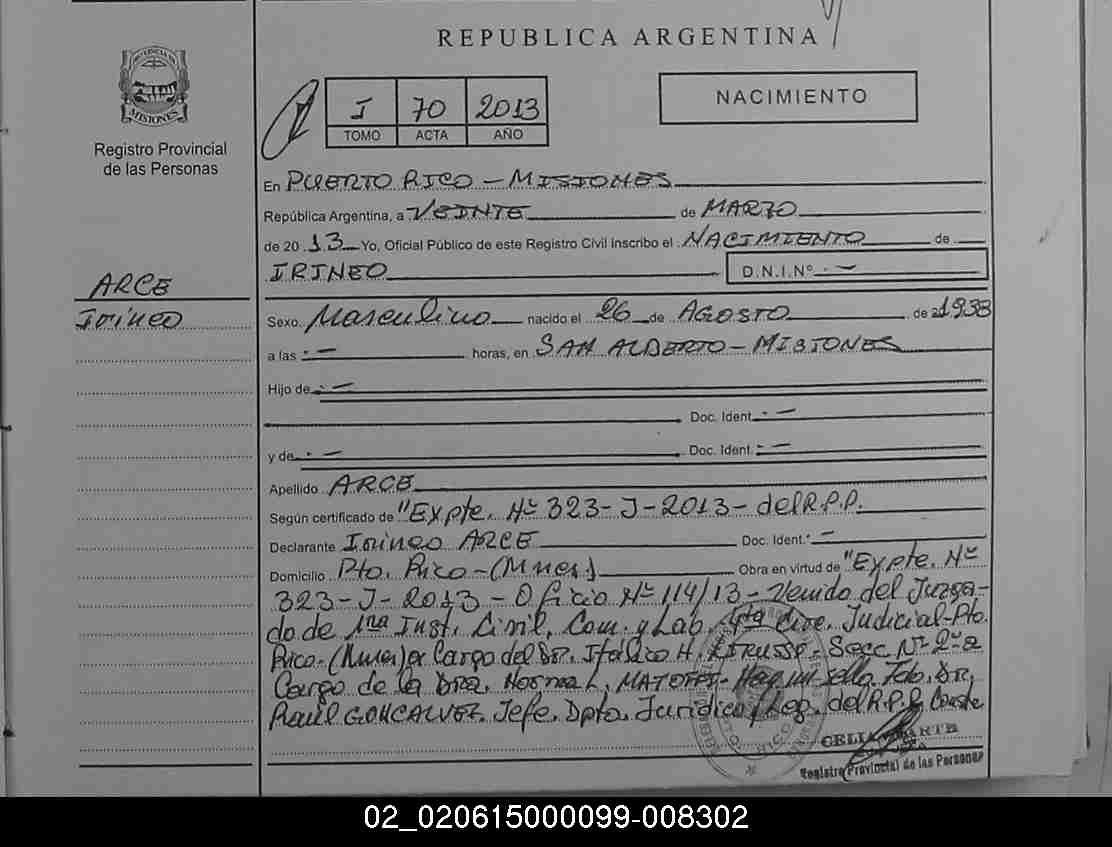 REPUBLICA ARGENTINA
PROVINCIA DE
MISIONES
Registro Provincial
de las Personas
I 70 2013
TOMO ACTA AÑO
NACIMIENTO
En PUERTO RICO - MISIONES
República Argentina, a VEINTE de MARZO
de 20 13 Yo, Oficial Público de este Registro Civil inscribo el NACIMIENTO de
IRINEO D.N.I.Nº. -
ARCE
Irineo
Sexo. Masculino nacido el 26 de AGOSTO de 1938
a las - horas, en SAN ALBERTO - MISIONES
Hijo de -
Doc. Ident. -
y de - Doc. Ident. -
Apellido ARCE
Según certificado de "Expte. Nº 323-J-2013- del R.P.P.
Declarante Irineo ARCE Doc. Ident. -
Domicilio Pto. Rico-(Mnes) Obra en virtud de "Expte. Nº
323-J-2013 - Oficio Nº 114/13 - Venido del Juzga-
do de 1ra Inst. Civil, Com. y Lab. 4ta Circ. Judicial-Pto.
Rico-(Mnes) a Cargo del Dr. Itálico H. Secc Nº 2-a
Cargo de la Dra. Norma L. Hay un sello Fdo. Dr.
Raúl GONCALVEZ. Jefe. Dpto. Jurídico y Leg. del R.P.P. Conste
CELIA
Registro Provincial de las Personas
02_020615000099-008302